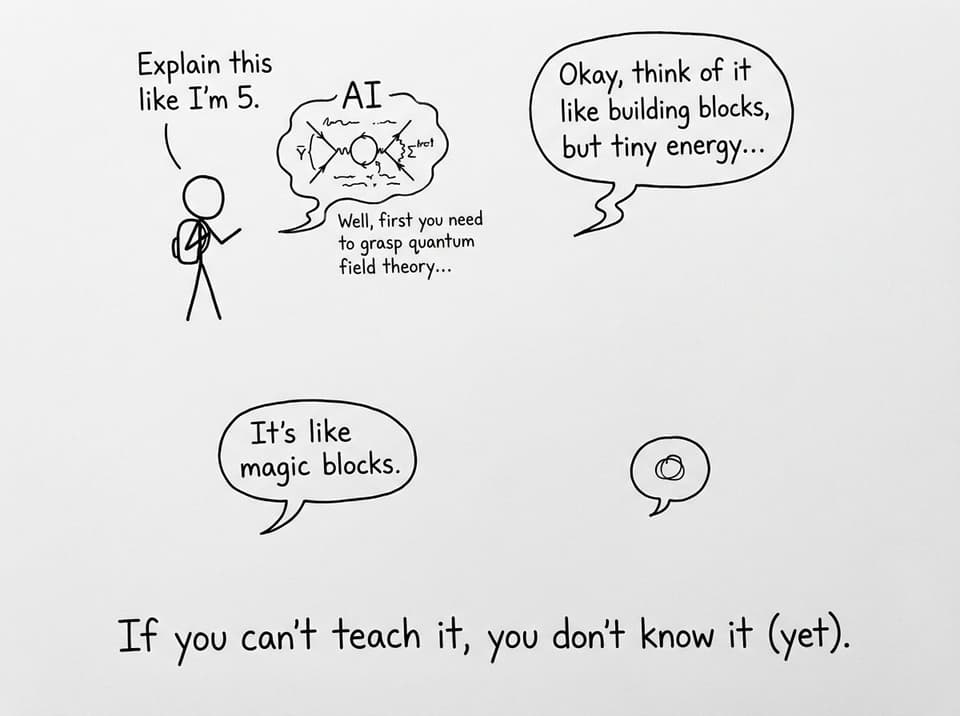 Explain this
like I'm 5.
AI
Well, first you need
to grasp quantum
field theory...
Okay, think of it
like building blocks,
but tiny energy...
It's like
magic blocks.
If you can't teach it, you don't know it (yet).